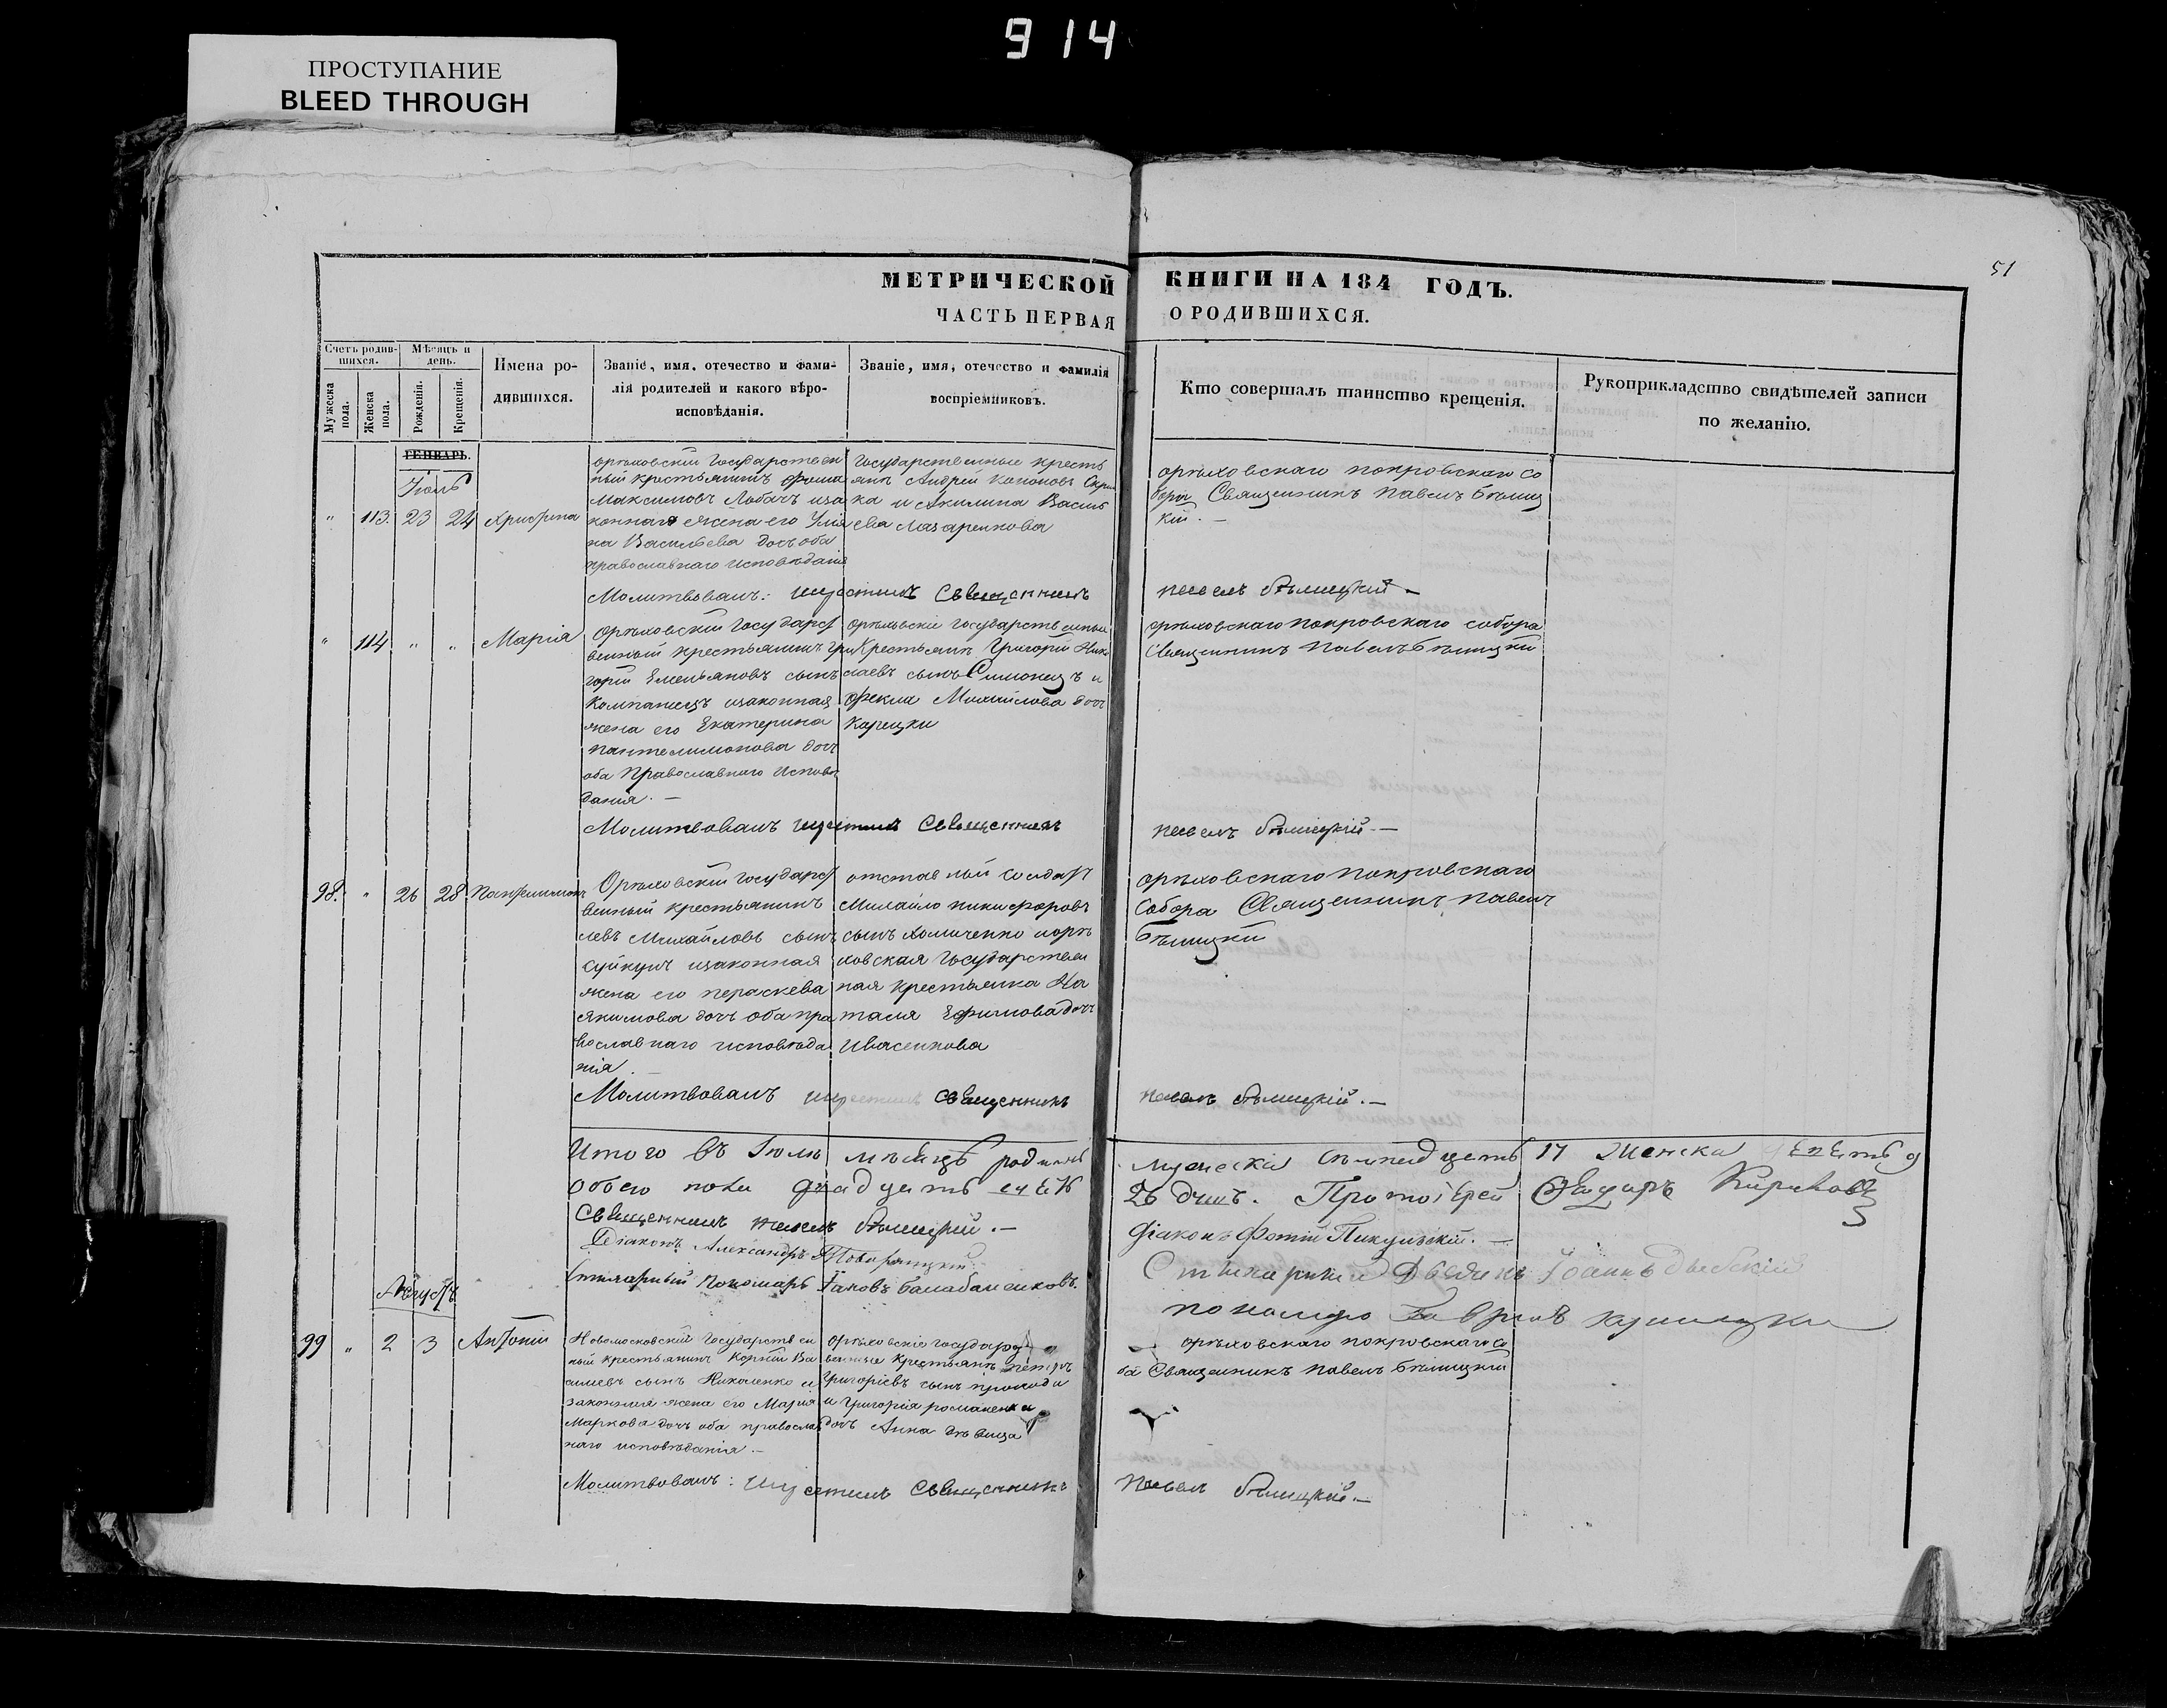 914
ПРОСТУПАНИЕ
BLEED THROUGH
51
МЕТРИЧЕСКОЙ КНИГИ НА 184 ГОДЪ.
ЧАСТЬ ПЕРВАЯ О РОДИВШИХСЯ.
Счетъ родившихся.
Мужеска пола.
Женска пола.
Мѣсяцъ и день.
Рожденія.
Крещенія.
Имена родившихся.
Званіе, имя, отечество и фамилія родителей и какого вѣроисповѣданія.
Званіе, имя, отечество и фамилія воспріемниковъ.
Кто совершалъ таинство крещенія.
Рукоприкладство свидѣтелей записи по желанію.
ГЕНВАРЬ.
Іюль
" 113. 23 24 Христина
орѣховскій Государствен
ный крестьянинъ Фома
Максимовъ Лобачъ иза
конная жена его Улія
на Васильева дочь оба
православнаго исповѣданія
Государственные кресть
янъ Андрей Кононовъ
ка и Акилина Василь
ева Лазаренкова
орѣховскаго покровскаго со
бора Священникъ Павелъ Бѣлиц
кій. –
Молитвовалъ: икрестилъ Священникъ
павелъ бѣлицкій –
" 114 " " Марія
Орѣховскій Государст
венный крестьянинъ Гри
горій Емельяновъ сынъ
Компанецъ изаконная
жена его Екатерина
пантелимонова дочь
оба Православнаго Исповѣ
данія. –
орѣховскіе государственные
Крестьянъ Григорій Нико
лаевъ сынъ Симонецъ и
Фекла Михайлова дочь
Карецки
орѣховскаго покровскаго собора
Священникъ Павелъ Бѣлицкій
Молитвовалъ икрестилъ Священникъ
павелъ бѣлицкій. –
98. " 26 28 Пантелимонъ
Орѣховскій Государст
венный крестьянинъ
левъ Михайловъ сынъ
изаконная
жена его Параскева
Якимова дочь оба пра
вославнаго исповѣда
нія. –
отставный солдатъ
Михайло никифоровъ
сынъ Хомиченко иорѣ
ховская Государствен
ная крестьянка На
талія Ефимова дочь
Ивасенкова
орѣховскаго покровскаго
Собора Священникъ павелъ
Бѣлицкій
Молитвовалъ икрестилъ священникъ
павелъ бѣлицкій. –
Итого въ Іюлѣ мѣсяцѣ
обоего пола двадцать
мужеска семнадцать 17 женска девять 9
26 душъ. Протоіерей Федоръ Кириковъ
Священникъ павелъ бѣлицкій. –
Діаконъ Александръ
діаконъ Фотій Пикульскій. –
Стихарный Пономарь Іаковъ Балабаненковъ.
Іоаннъ
пономарь Гавріилъ
Августъ
99 " 2 3 Антоній
Новомосковскій Государствен
ный крестьянинъ Корній Ва
сильевъ сынъ Николенко и
законная жена его Марія
Маркова дочь оба православ
наго исповѣданія. –
Орѣховскіе государст
венные крестьянъ петръ
Григоріевъ сынъ
и Григорія романенка
дочь Анна дѣвица
орѣховскаго покровскаго со
ба Священникъ павелъ Бѣлицкій
Молитвовалъ: икрестилъ священникъ
павелъ бѣлицкій. –